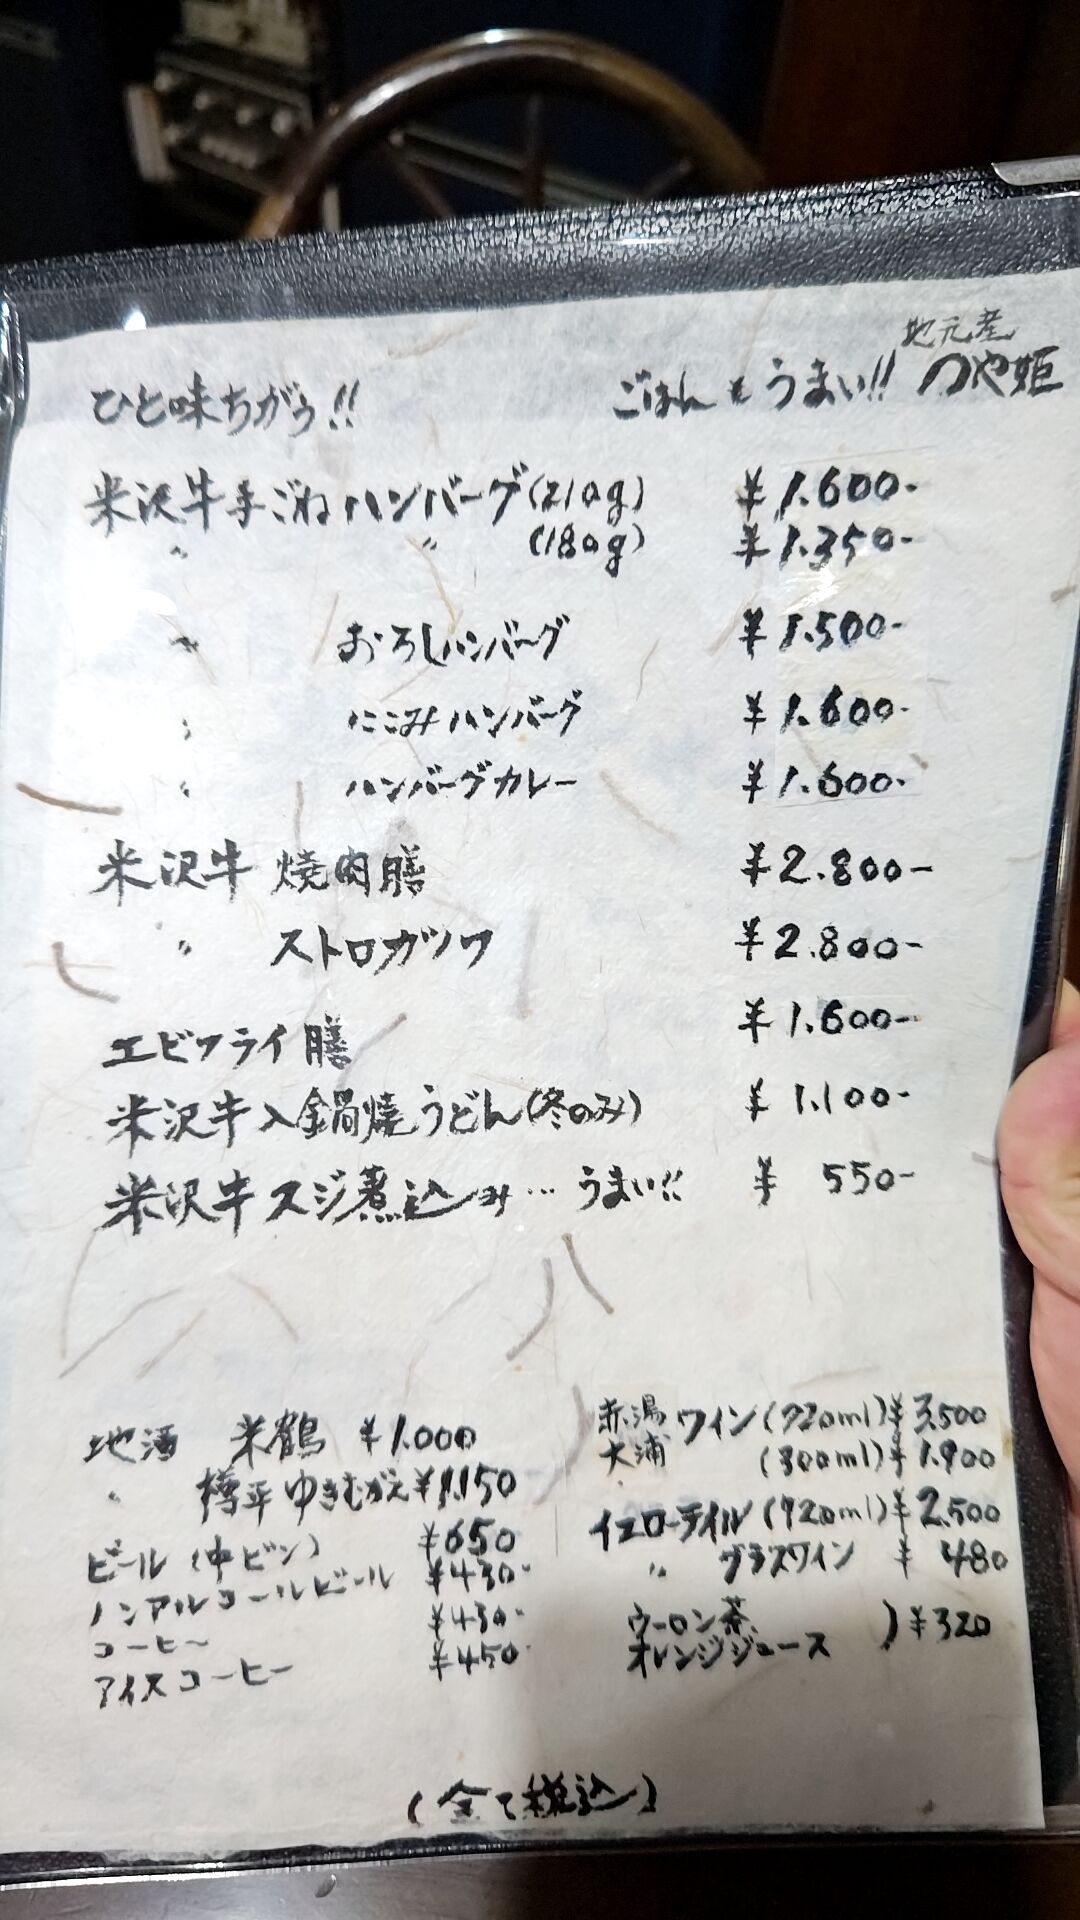 ひと味ちがう!!
地元産
ごはんもうまい!! つや姫
米沢牛手ごねハンバーグ(210g) ¥1.600-
〃 〃 (180g) ¥1.350-
〃 おろしハンバーグ ¥1.500-
〃 にこみハンバーグ ¥1.600-
〃 ハンバーグカレー ¥1.600-
米沢牛 焼肉膳 ¥2.800-
〃 ストロガノフ ¥2.800-
エビフライ膳 ¥1.600-
米沢牛入鍋焼うどん(冬のみ) ¥1.100-
米沢牛スジ煮込み… うまい!! ¥550-
地酒 米鶴 ¥1.000
〃 樽平ゆきむかえ ¥1.150
ビール(中ビン) ¥650
ノンアルコールビール ¥430-
コーヒー ¥430-
アイスコーヒー ¥450-
赤湯ワイン(720ml) ¥3.500
大浦 (300ml) ¥1.900
イエローテイル(720ml) ¥2.500
〃 グラスワイン ¥480
ウーロン茶
オレンジジュース ) ¥320
(全て税込)